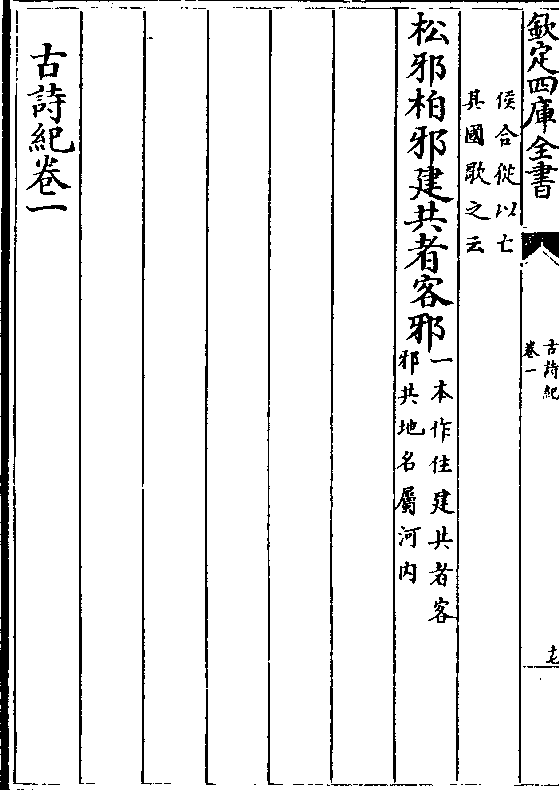 欽定四庫全書
古詩紀
卷一
侯合從以亡
其國歌之云
松邪柏邪建共者客邪
一本作住建共者客
邪共地名屬河内
古詩紀卷一